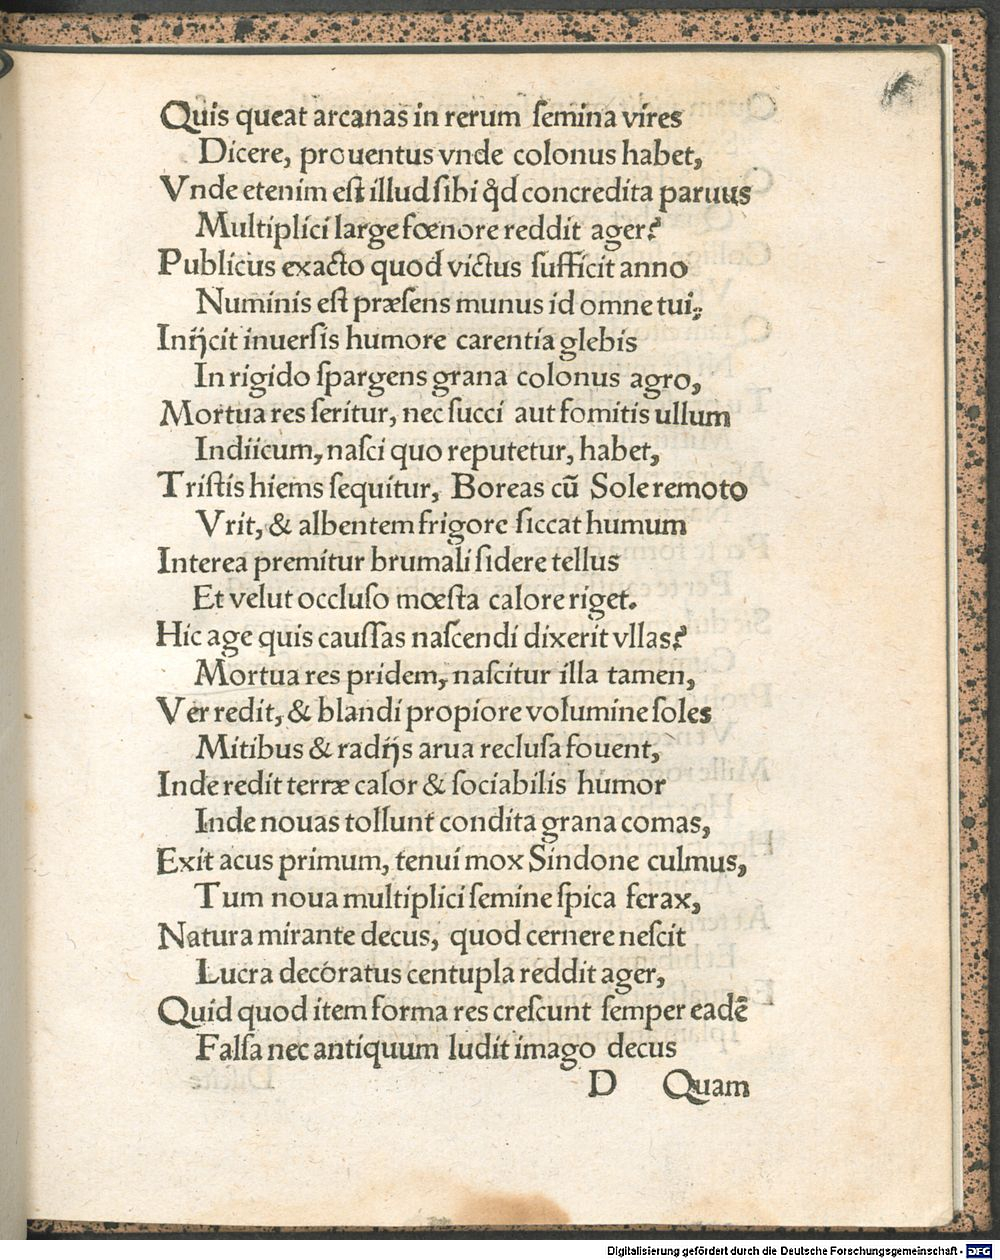 Quis queat arcanas in rerum ſemina vires
Dicere, prouentus vnde colonus habet,
Vnde etenim eſt illud ſibi ꝙd concredita paruus
Multiplici large fœnore reddit ager?
Publicus exacto quod victus ſufficit anno
Numinis eſt præſens munus id omne tui,
Inijcit inuerſis humore carentia glebis
In rigido ſpargens grana colonus agro,
Mortua res ſeritur, nec ſucci aut fomitis ullum
Indiicum, naſci quo reputetur, habet,
Triſtis hiems ſequitur, Boreas cū Sole remoto
Vrit, & albentem frigore ſiccat humum
Interea premitur brumali ſidere tellus
Et velut occluſo mœſta calore riget.
Hic age quis cauſſas naſcendi dixerit vllas?
Mortua res pridem, naſcitur illa tamen,
Ver redit, & blandi propiore volumine ſoles
Mitibus & radijs arua recluſa fouent,
Inde redit terræ calor & ſociabilis humor
Inde nouas tollunt condita grana comas,
Exit acus primum, tenui mox Sindone culmus,
Tum noua multiplici ſemine ſpica ferax,
Natura mirante decus, quod cernere neſcit
Lucra decoratus centupla reddit ager,
Quid quod item forma res creſcunt ſemper eadē
Falſa nec antiquum ludit imago decus
D Quam
Digitalisierung gefördert durch die Deutsche Forschungsgemeinschaft - DFG